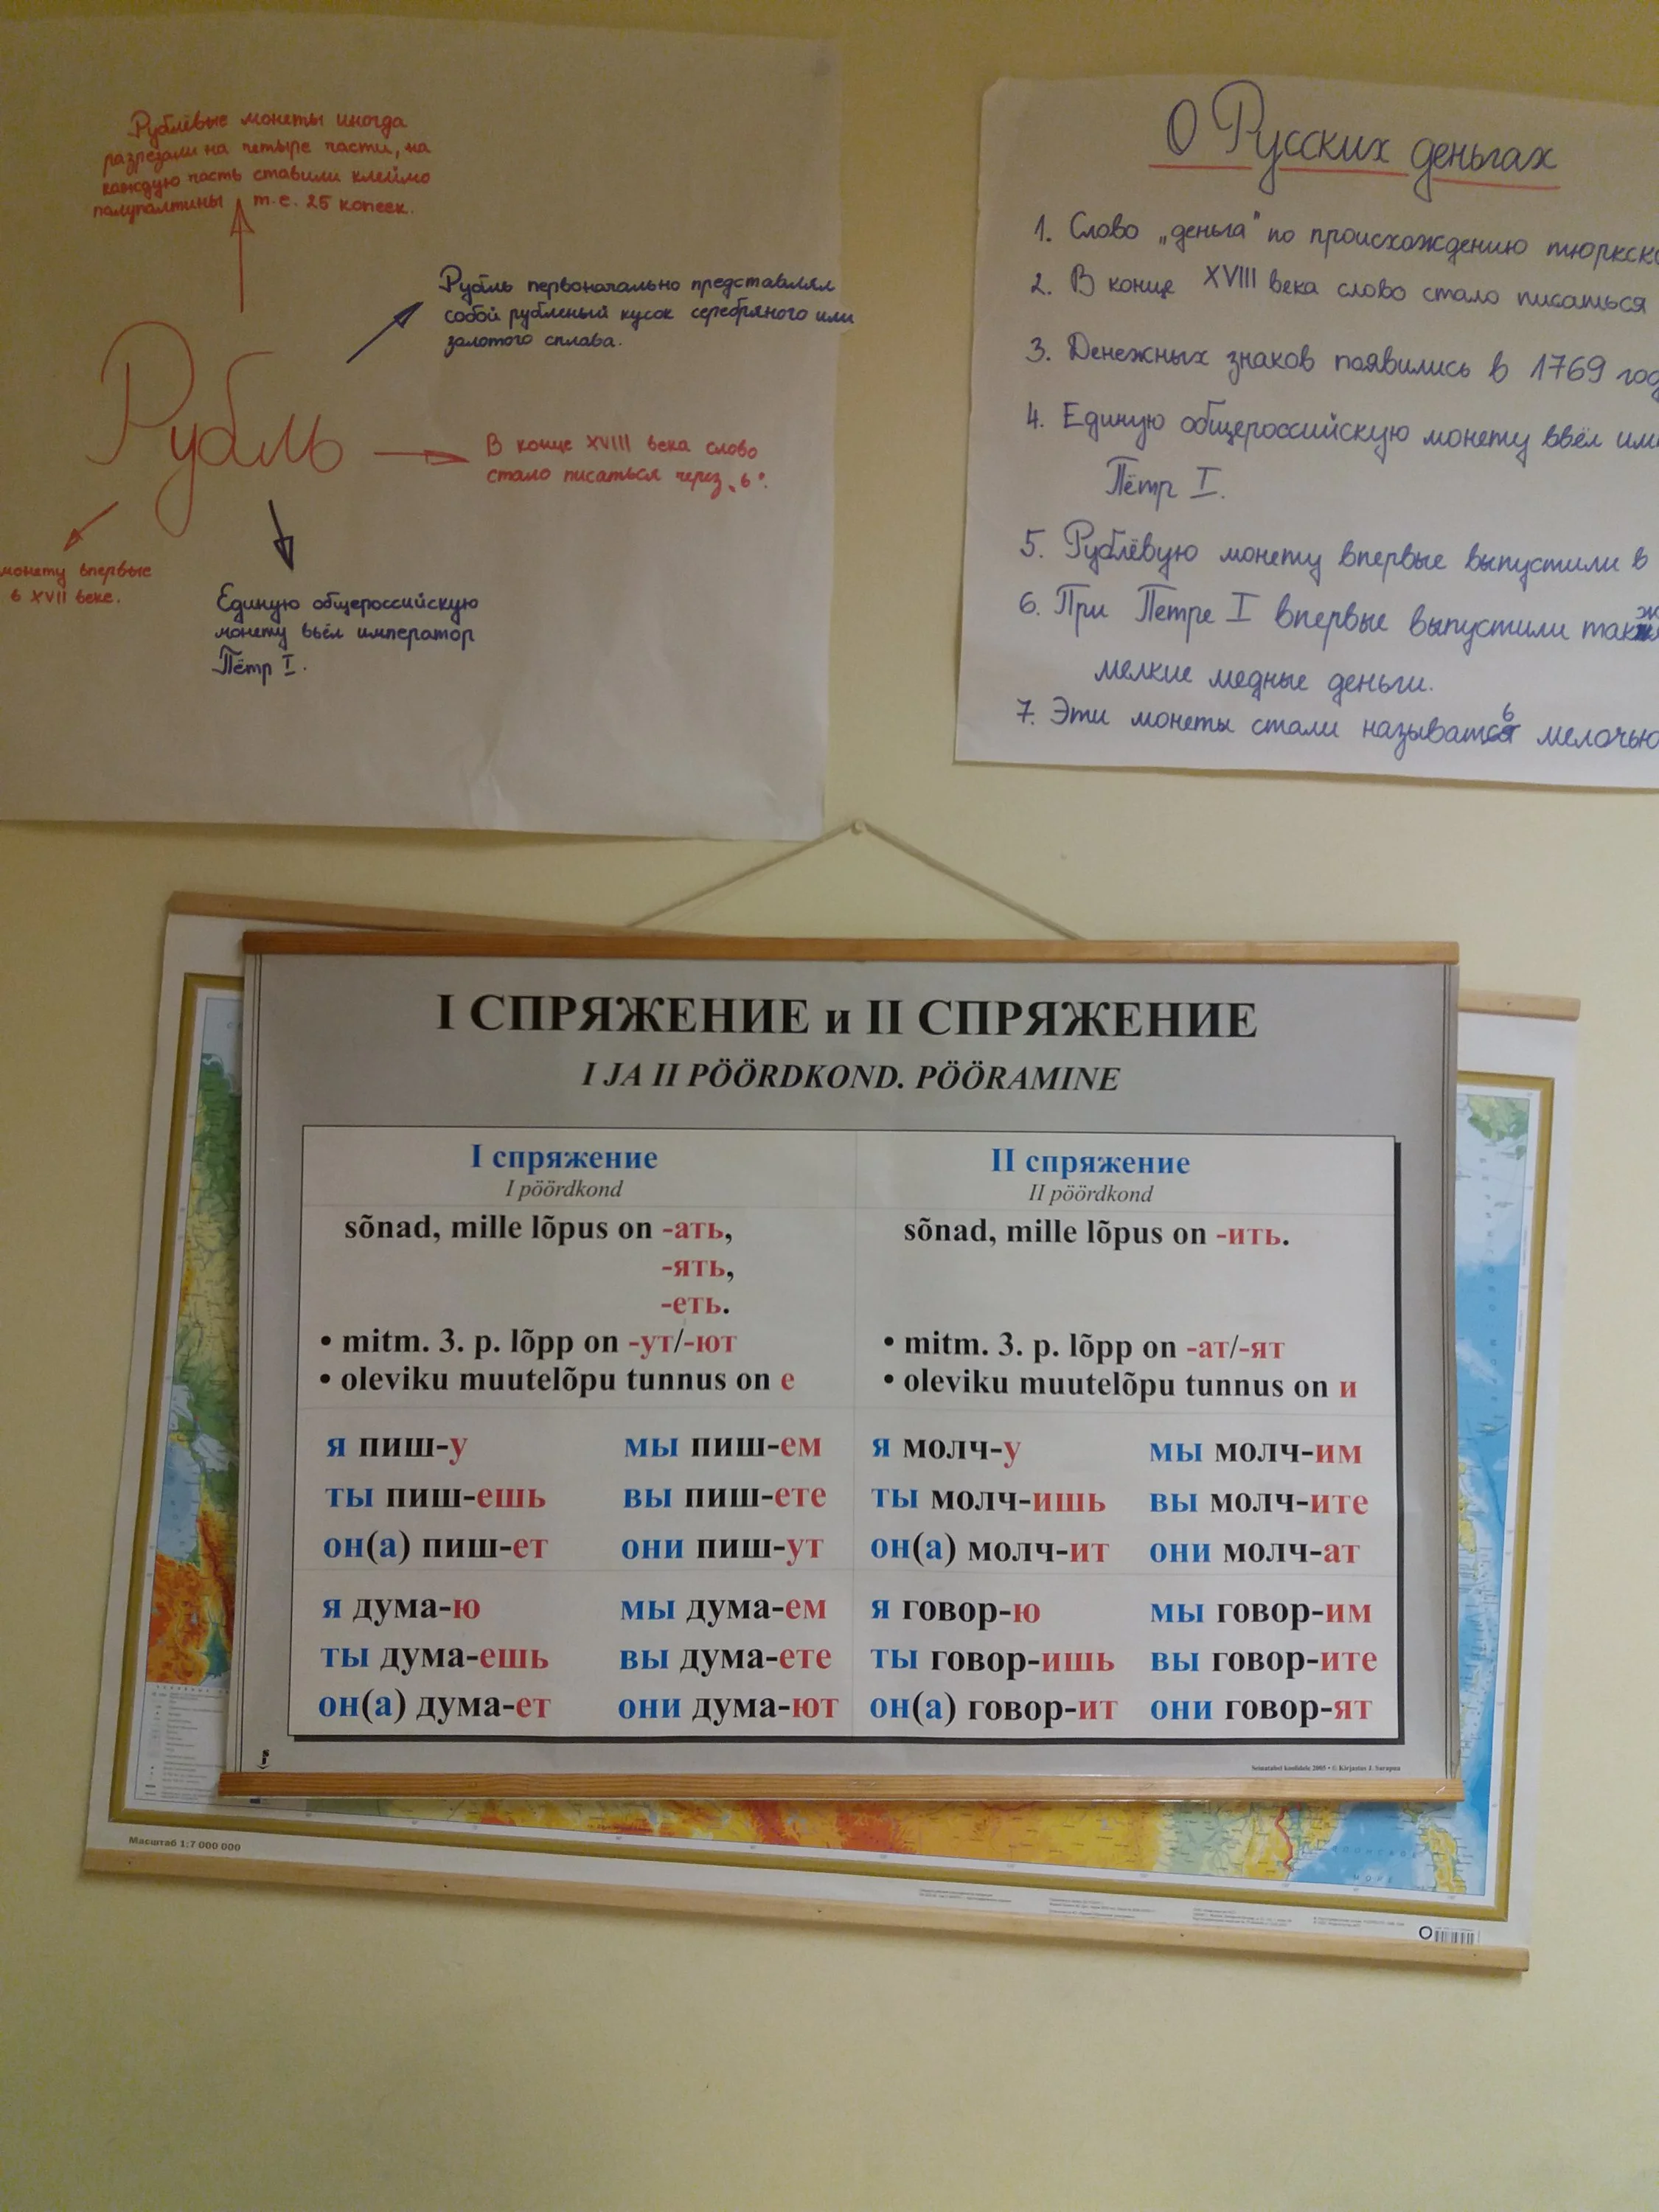 Рублёвые монеты иногда
разрезали на четыре части, на
каждую часть ставили клеймо
полуполтины т.е. 25 копеек.
Рубль первоначально представлял
собой рубленый кусок серебряного или
золотого сплава.
Рубль
В конце XVIII века слово
стало писаться через „ь".
монету впервые
в XVII веке.
Единую общероссийскую
монету ввёл император
Пётр I.
О Русских деньгах
1. Слово „деньга" по происхождению тюркско
2. В конце XVIII века слово стало писаться
3. Денежных знаков появились в 1769 год
4. Единую общероссийскую монету ввёл им
Пётр I.
5. Рублёвую монету впервые выпустили в
6. При Петре I впервые выпустили такж
мелкие медные деньги.
7. Эти монеты стали называться мелочью
I СПРЯЖЕНИЕ и II СПРЯЖЕНИЕ
I JA II PÖÖRDKOND. PÖÖRAMINE
I спряжение
I pöördkond
sõnad, mille lõpus on -ать,
-ять,
-еть.
• mitm. 3. p. lõpp on -ут/-ют
• oleviku muutelõpu tunnus on е
я пиш-у мы пиш-ем
ты пиш-ешь вы пиш-ете
он(а) пиш-ет они пиш-ут
я дума-ю мы дума-ем
ты дума-ешь вы дума-ете
он(а) дума-ет они дума-ют
II спряжение
II pöördkond
sõnad, mille lõpus on -ить.
• mitm. 3. p. lõpp on -ат/-ят
• oleviku muutelõpu tunnus on и
я молч-у мы молч-им
ты молч-ишь вы молч-ите
он(а) молч-ит они молч-ат
я говор-ю мы говор-им
ты говор-ишь вы говор-ите
он(а) говор-ит они говор-ят
Seinatabel koolidele 2005 • © Kirjastus J. Sarapuu
Масштаб 1:7 000 000
ЯПОНСКОЕ
МОРЕ